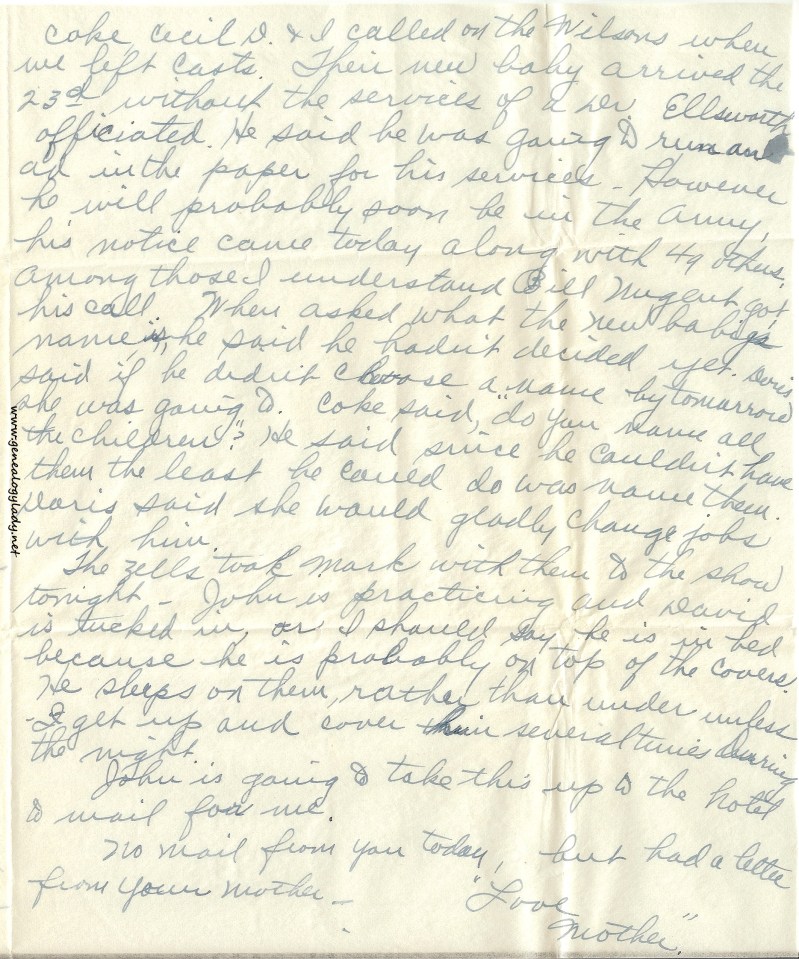 Coke, Cecil D. & I called on the Wilsons when
we left Casts. Their new baby arrived the
23rd without the services of a Dr. Ellsworth
officiated. He said he was going to run an
ad in the paper for his services - However
he will probably soon be in the Army,
his notice came today along with 49 others.
Among those I understand Bill Nugent got
his call. When asked what the new baby's
name is, he said he hadn't decided yet. Doris
said if he didn't choose a name by tomorrow
she was going to. Coke said, "do you name all
the children?" He said since he couldn't have
them the least he could do was name them.
Doris said she would gladly change jobs
with him.
The Zells took Mark with them to the show
tonight - John is practicing and David
is tucked in, or I should say he is in bed
because he is probably on top of the covers.
He sleeps on them, rather than under unless
I get up and cover him several times during
the night.
John is going to take this up to the hotel
to mail for me.
No mail from you today, but had a letter
from your mother -
"Love
Mother".
www.genealogylady.net